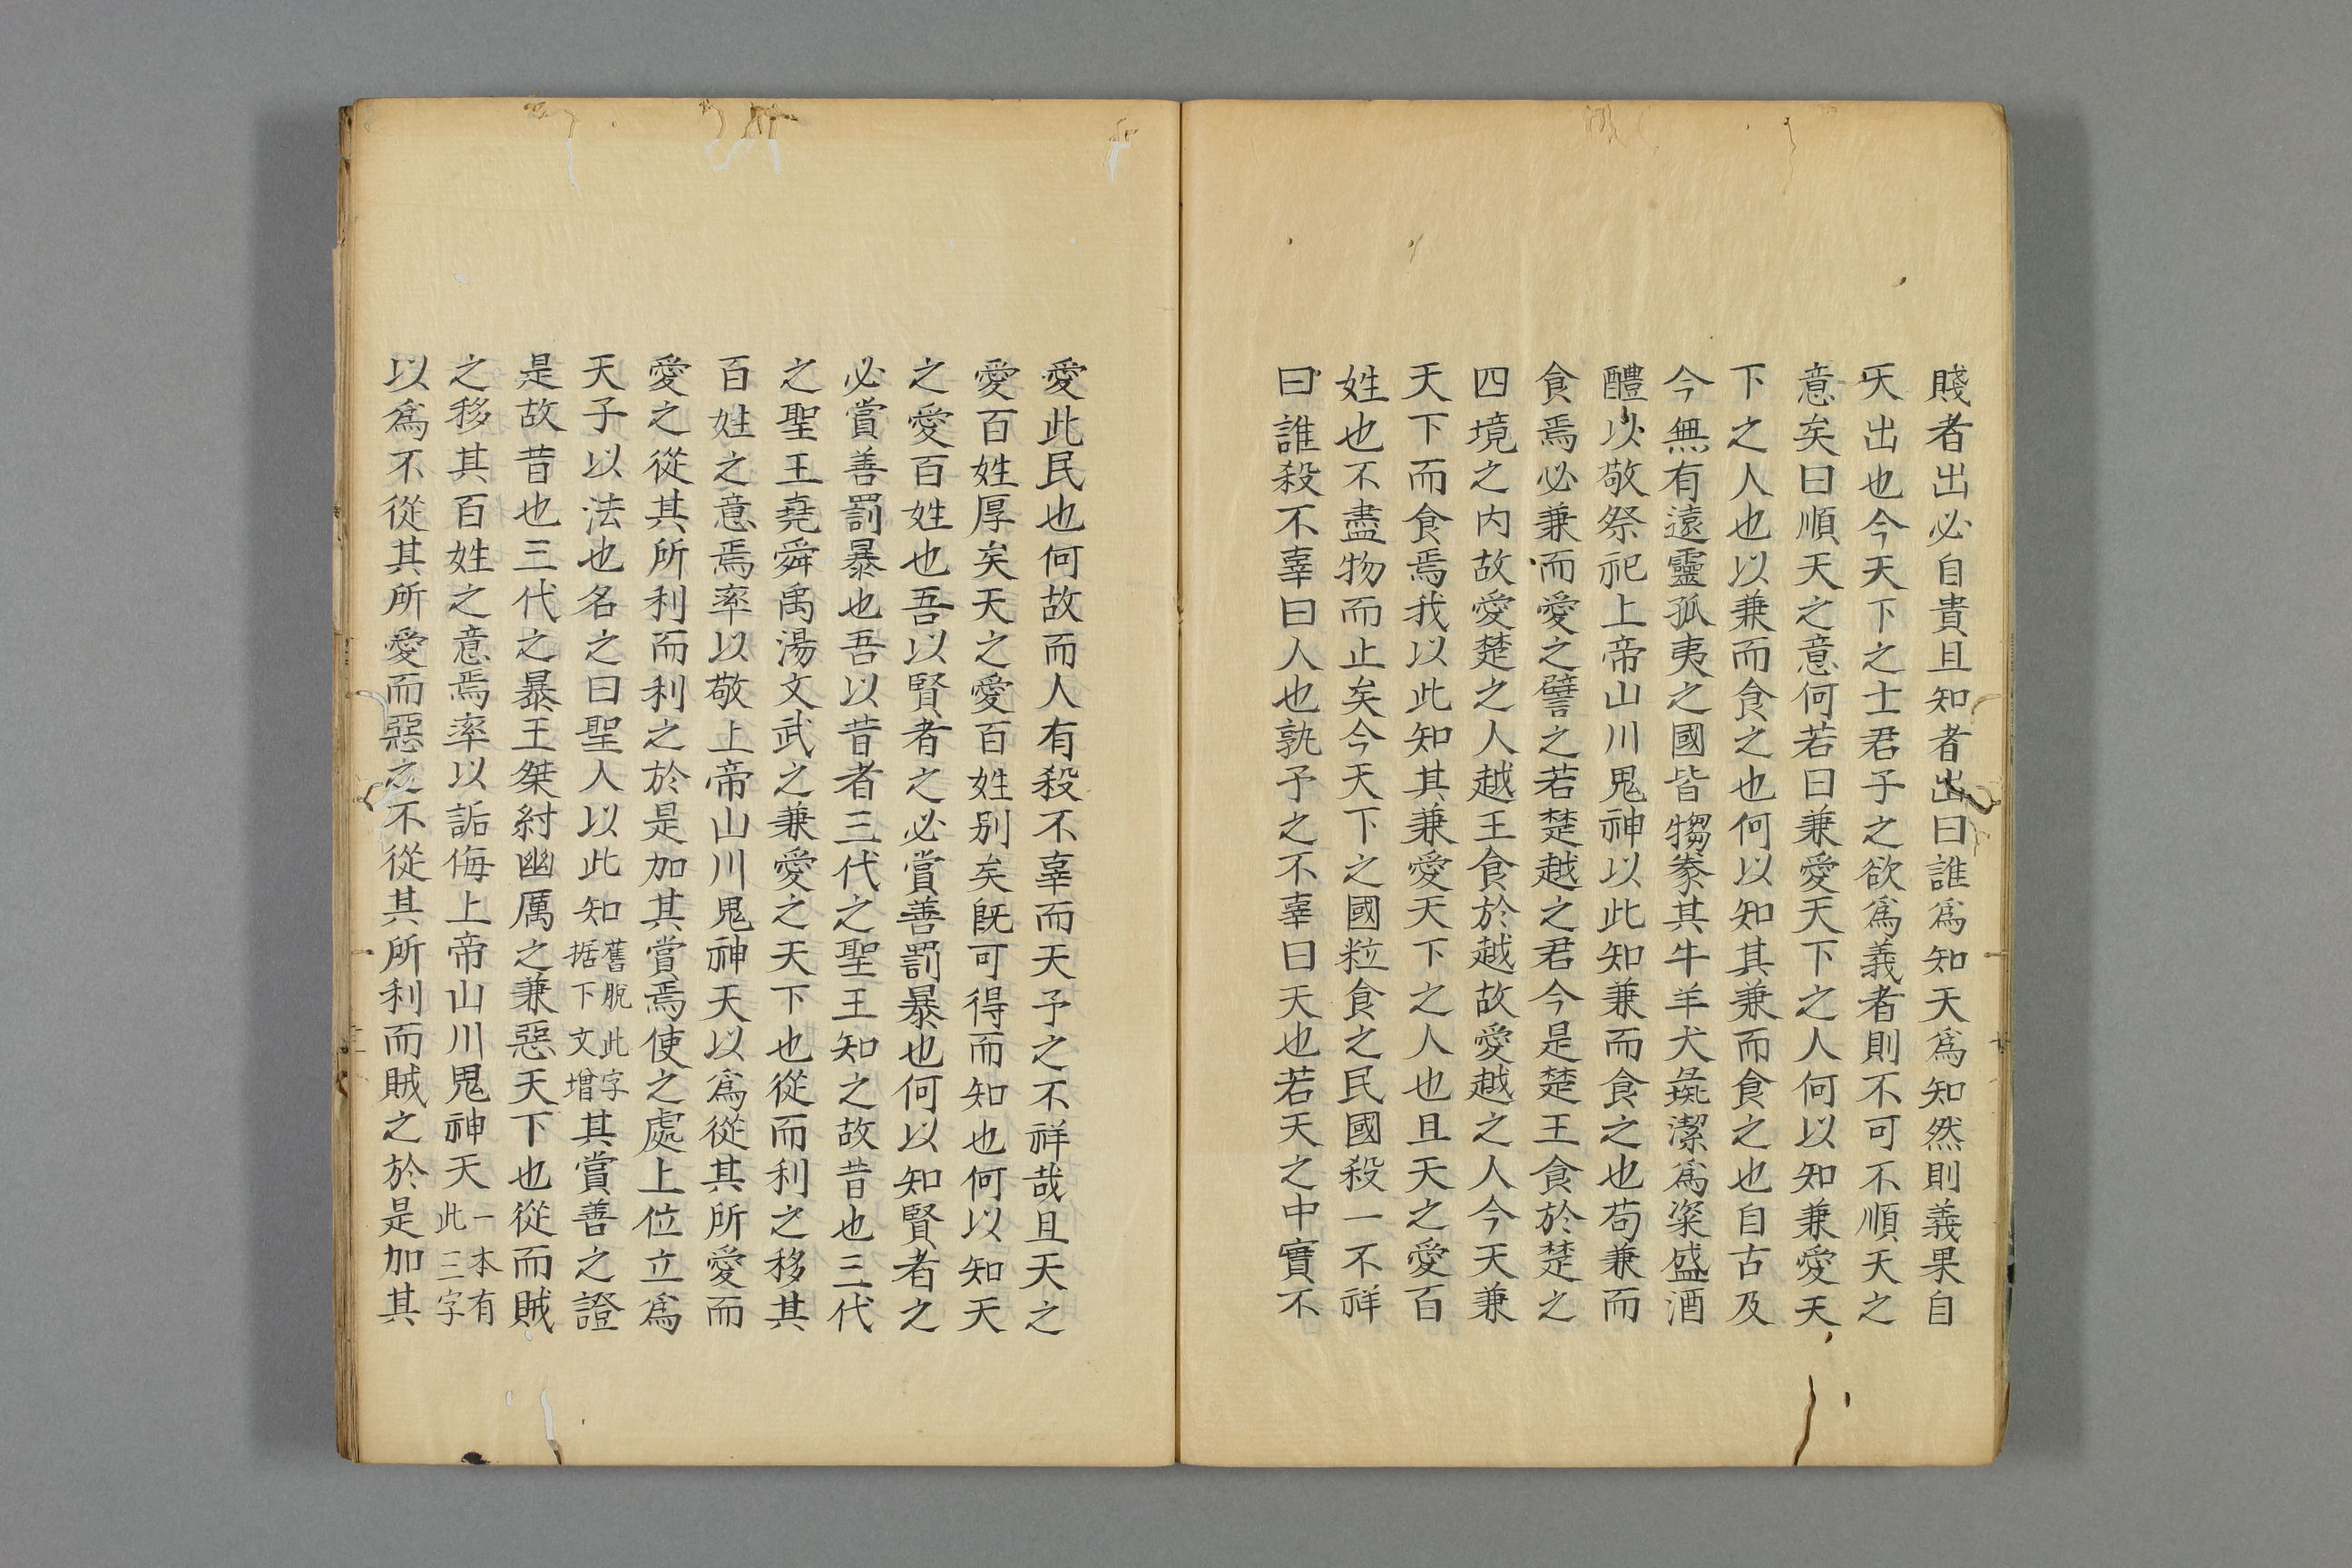 賤者出必自貴且知者出曰誰爲知天爲知然則義果自
天出也今天下之士君子之欲爲義者則不可不順天之
意矣曰順天之意何若曰兼愛天下之人何以知兼愛天
下之人也以兼而食之也何以知其兼而食之也自古及
今無有遠靈孤夷之國皆犓豢其牛羊犬彘潔爲粢盛酒
醴以敬祭祀上帝山川鬼神以此知兼而食之也苟兼而
食焉必兼而愛之譬之若楚越之君今是楚王食於楚之
四境之內故愛楚之人越王食於越故愛越之人今天兼
天下而食焉我以此知其兼愛天下之人也且天之愛百
姓也不盡物而止矣今天下之國粒食之民國殺一不祥
曰誰殺不辜曰人也孰予之不辜曰天也若天之中實不
愛此民也何故而人有殺不辜而天予之不祥哉且天之
愛百姓厚矣天之愛百姓別矣旣可得而知也何以知天
之愛百姓也吾以賢者之必賞善罰暴也何以知賢者之
必賞善罰暴也吾以昔者三代之聖王知之故昔也三代
之聖王堯舜禹湯文武之兼愛之天下也從而利之移其
百姓之意焉率以敬上帝山川鬼神天以爲從其所愛而
愛之從其所利而利之於是加其賞焉使之處上位立爲
天子以法也名之曰聖人以此知舊脫此字据下文增其賞善之證
是故昔也三代之暴王桀紂幽厲之兼惡天下也從而賊
之移其百姓之意焉率以詬侮上帝山川鬼神天一本有此三字
以爲不從其所愛而惡之不從其所利而賊之於是加其